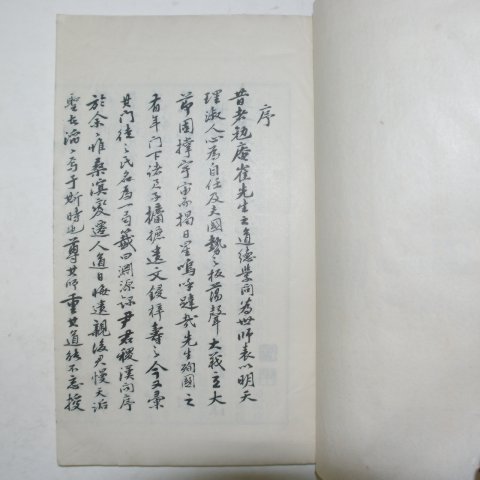 序
昔者勉庵崔先生之道德學問為世師表以明天
理淑人心為自任及夫國勢之板蕩聲大義立大
節固撑宇宙揭日星嗚呼韙哉先生殉國之
有年門下諸君子攟摭遺文鋟梓壽之今又彙
其門徒之氏名為一局籤曰淵源錄尹君稷漢問序
於余〻惟桑溟變遷人道日晦遺親後君慢天詬
聖者滔〻焉于斯時也尊其師重其道能不忘授